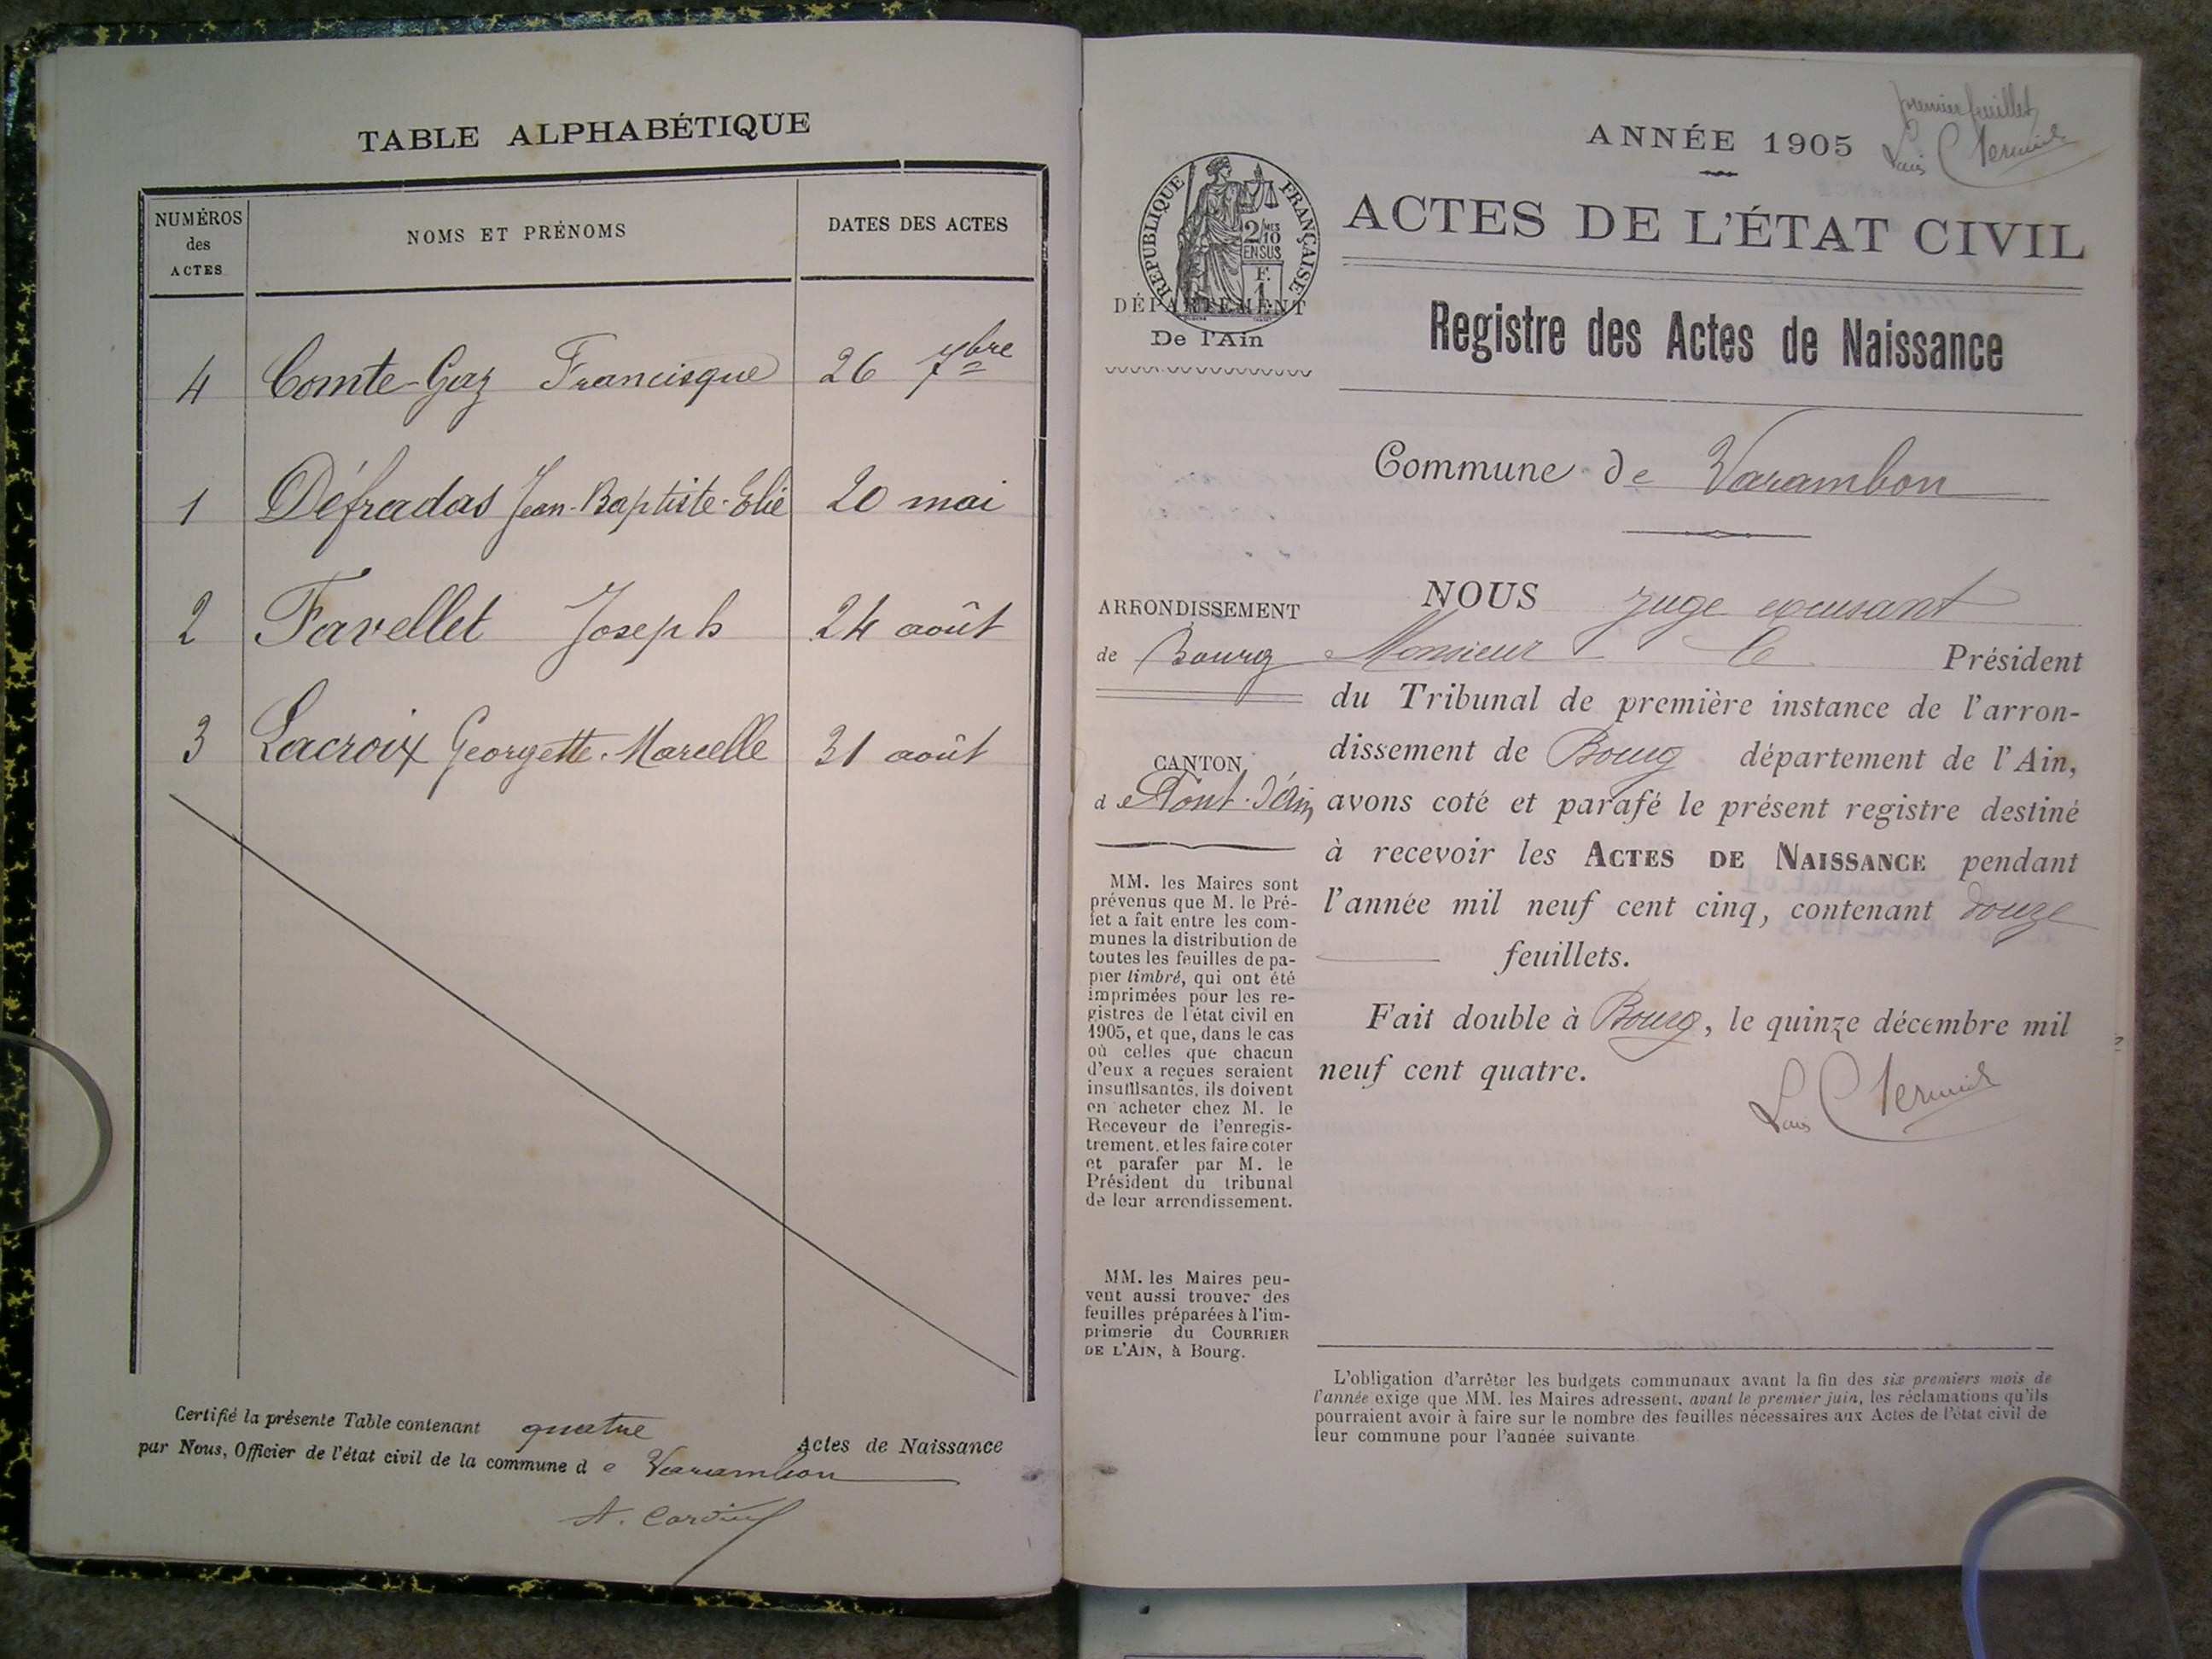 TABLE ALPHABÉTIQUE
NUMÉROS des ACTES
NOMS ET PRÉNOMS
DATES DES ACTES
4 Comte-Gaz Francisque 26 7bre
1 Défradas Jean-Baptiste-Elie 20 mai
2 Favellet Joseph 24 août
3 Lacroix Georgette-Marcelle 31 août
Certifié la présente Table contenant quatre Actes de Naissance
par Nous, Officier de l'état civil de la commune de Varambon
premier feuillet
ANNÉE 1905
ACTES DE L'ÉTAT CIVIL
RÉPUBLIQUE FRANÇAISE
2/10 MES
EN SUS
1 F.
DÉPARTEMENT
De l'Ain
Registre des Actes de Naissance
Commune de Varambon
ARRONDISSEMENT
de Bourg
CANTON
de Pont-d'Ain
MM. les Maires sont
prévenus que M. le Pré-
fet a fait entre les com-
munes la distribution de
toutes les feuilles de pa-
pier timbré, qui ont été
imprimées pour les re-
gistres de l'état civil en
1905, et que, dans le cas
où celles que chacun
d'eux a reçues seraient
insuffisantes, ils doivent
en acheter chez M. le
Receveur de l'enregis-
trement, et les faire coter
et parafer par M. le
Président du tribunal
de leur arrondissement.
MM. les Maires peu-
vent aussi trouver des
feuilles préparées à l'im-
primerie du COURRIER
DE L'AIN, à Bourg.
NOUS Juge excusant
Monsieur le Président
du Tribunal de première instance de l'arron-
dissement de Bourg département de l'Ain,
avons coté et parafé le présent registre destiné
à recevoir les ACTES DE NAISSANCE pendant
l'année mil neuf cent cinq, contenant douze
feuillets.
Fait double à Bourg, le quinze décembre mil
neuf cent quatre.
L'obligation d'arrêter les budgets communaux avant la fin des six premiers mois de
l'année exige que MM. les Maires adressent, avant le premier juin, les réclamations qu'ils
pourraient avoir à faire sur le nombre des feuilles nécessaires aux Actes de l'état civil de
leur commune pour l'année suivante.